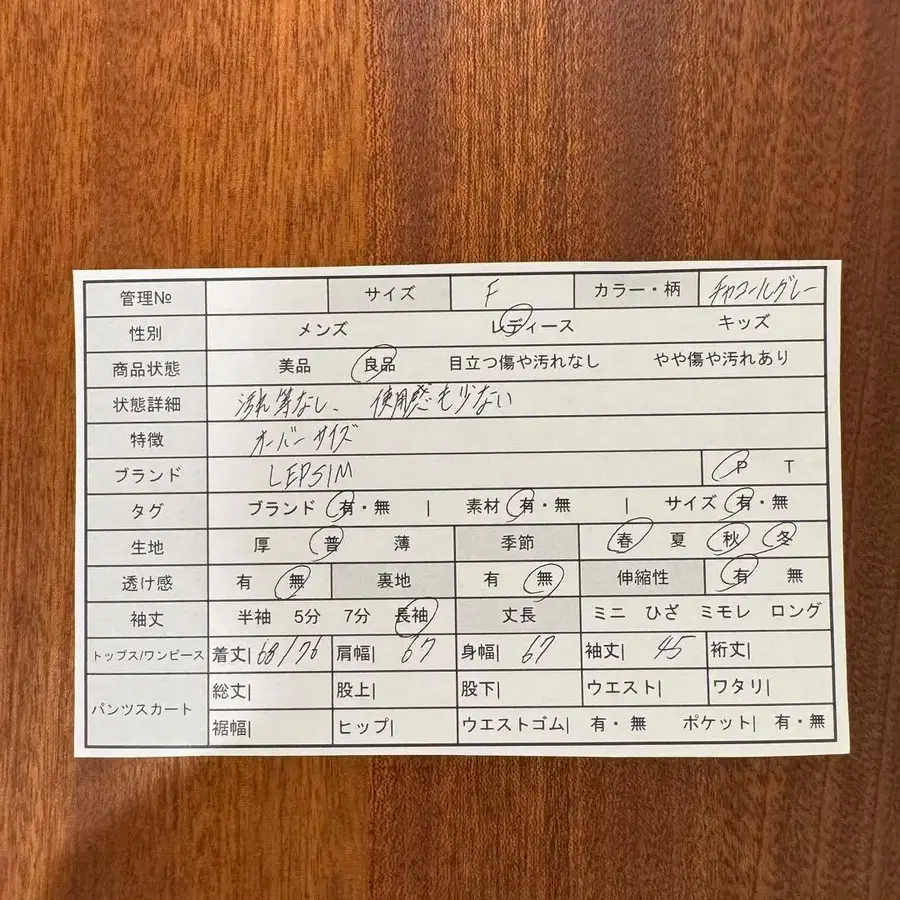 管理№ サイズ F カラー・柄 チャコールグレー
性別 メンズ レディース キッズ
商品状態 美品 良品 目立つ傷や汚れなし やや傷や汚れあり
状態詳細 汚れ等なし、使用感も少ない
特徴 オーバーサイズ
ブランド LEPSIM P T
タグ ブランド 有・無 | 素材 有・無 | サイズ 有・無
生地 厚 普 薄 季節 春 夏 秋 冬
透け感 有 無 裏地 有 無 伸縮性 有 無
袖丈 半袖 5分 7分 長袖 丈長 ミニ ひざ ミモレ ロング
トップス/ワンピース 着丈| 68/76 肩幅| 67 身幅| 67 袖丈| 45 裄丈|
パンツスカート 総丈| 股上| 股下| ウエスト| ワタリ|
裾幅| ヒップ| ウエストゴム| 有・無 ポケット| 有・無